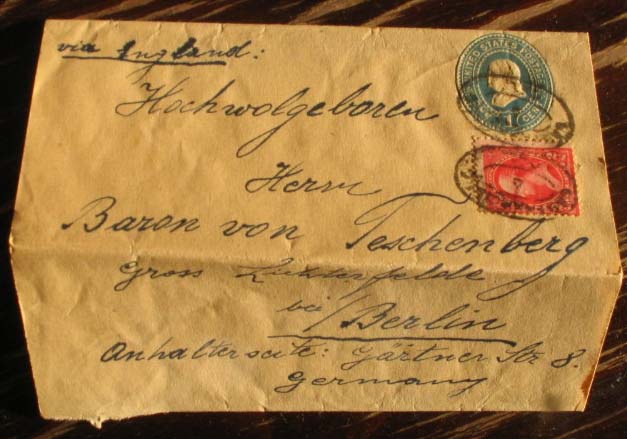 via England:
UNITED STATES POSTAGE
1
CENT
Hochwolgeboren
Herrn
Baron von Teschenberg
Gross Lichterfelde
bei Berlin
Anhalterseite: Gärtner Str 8.
Germany